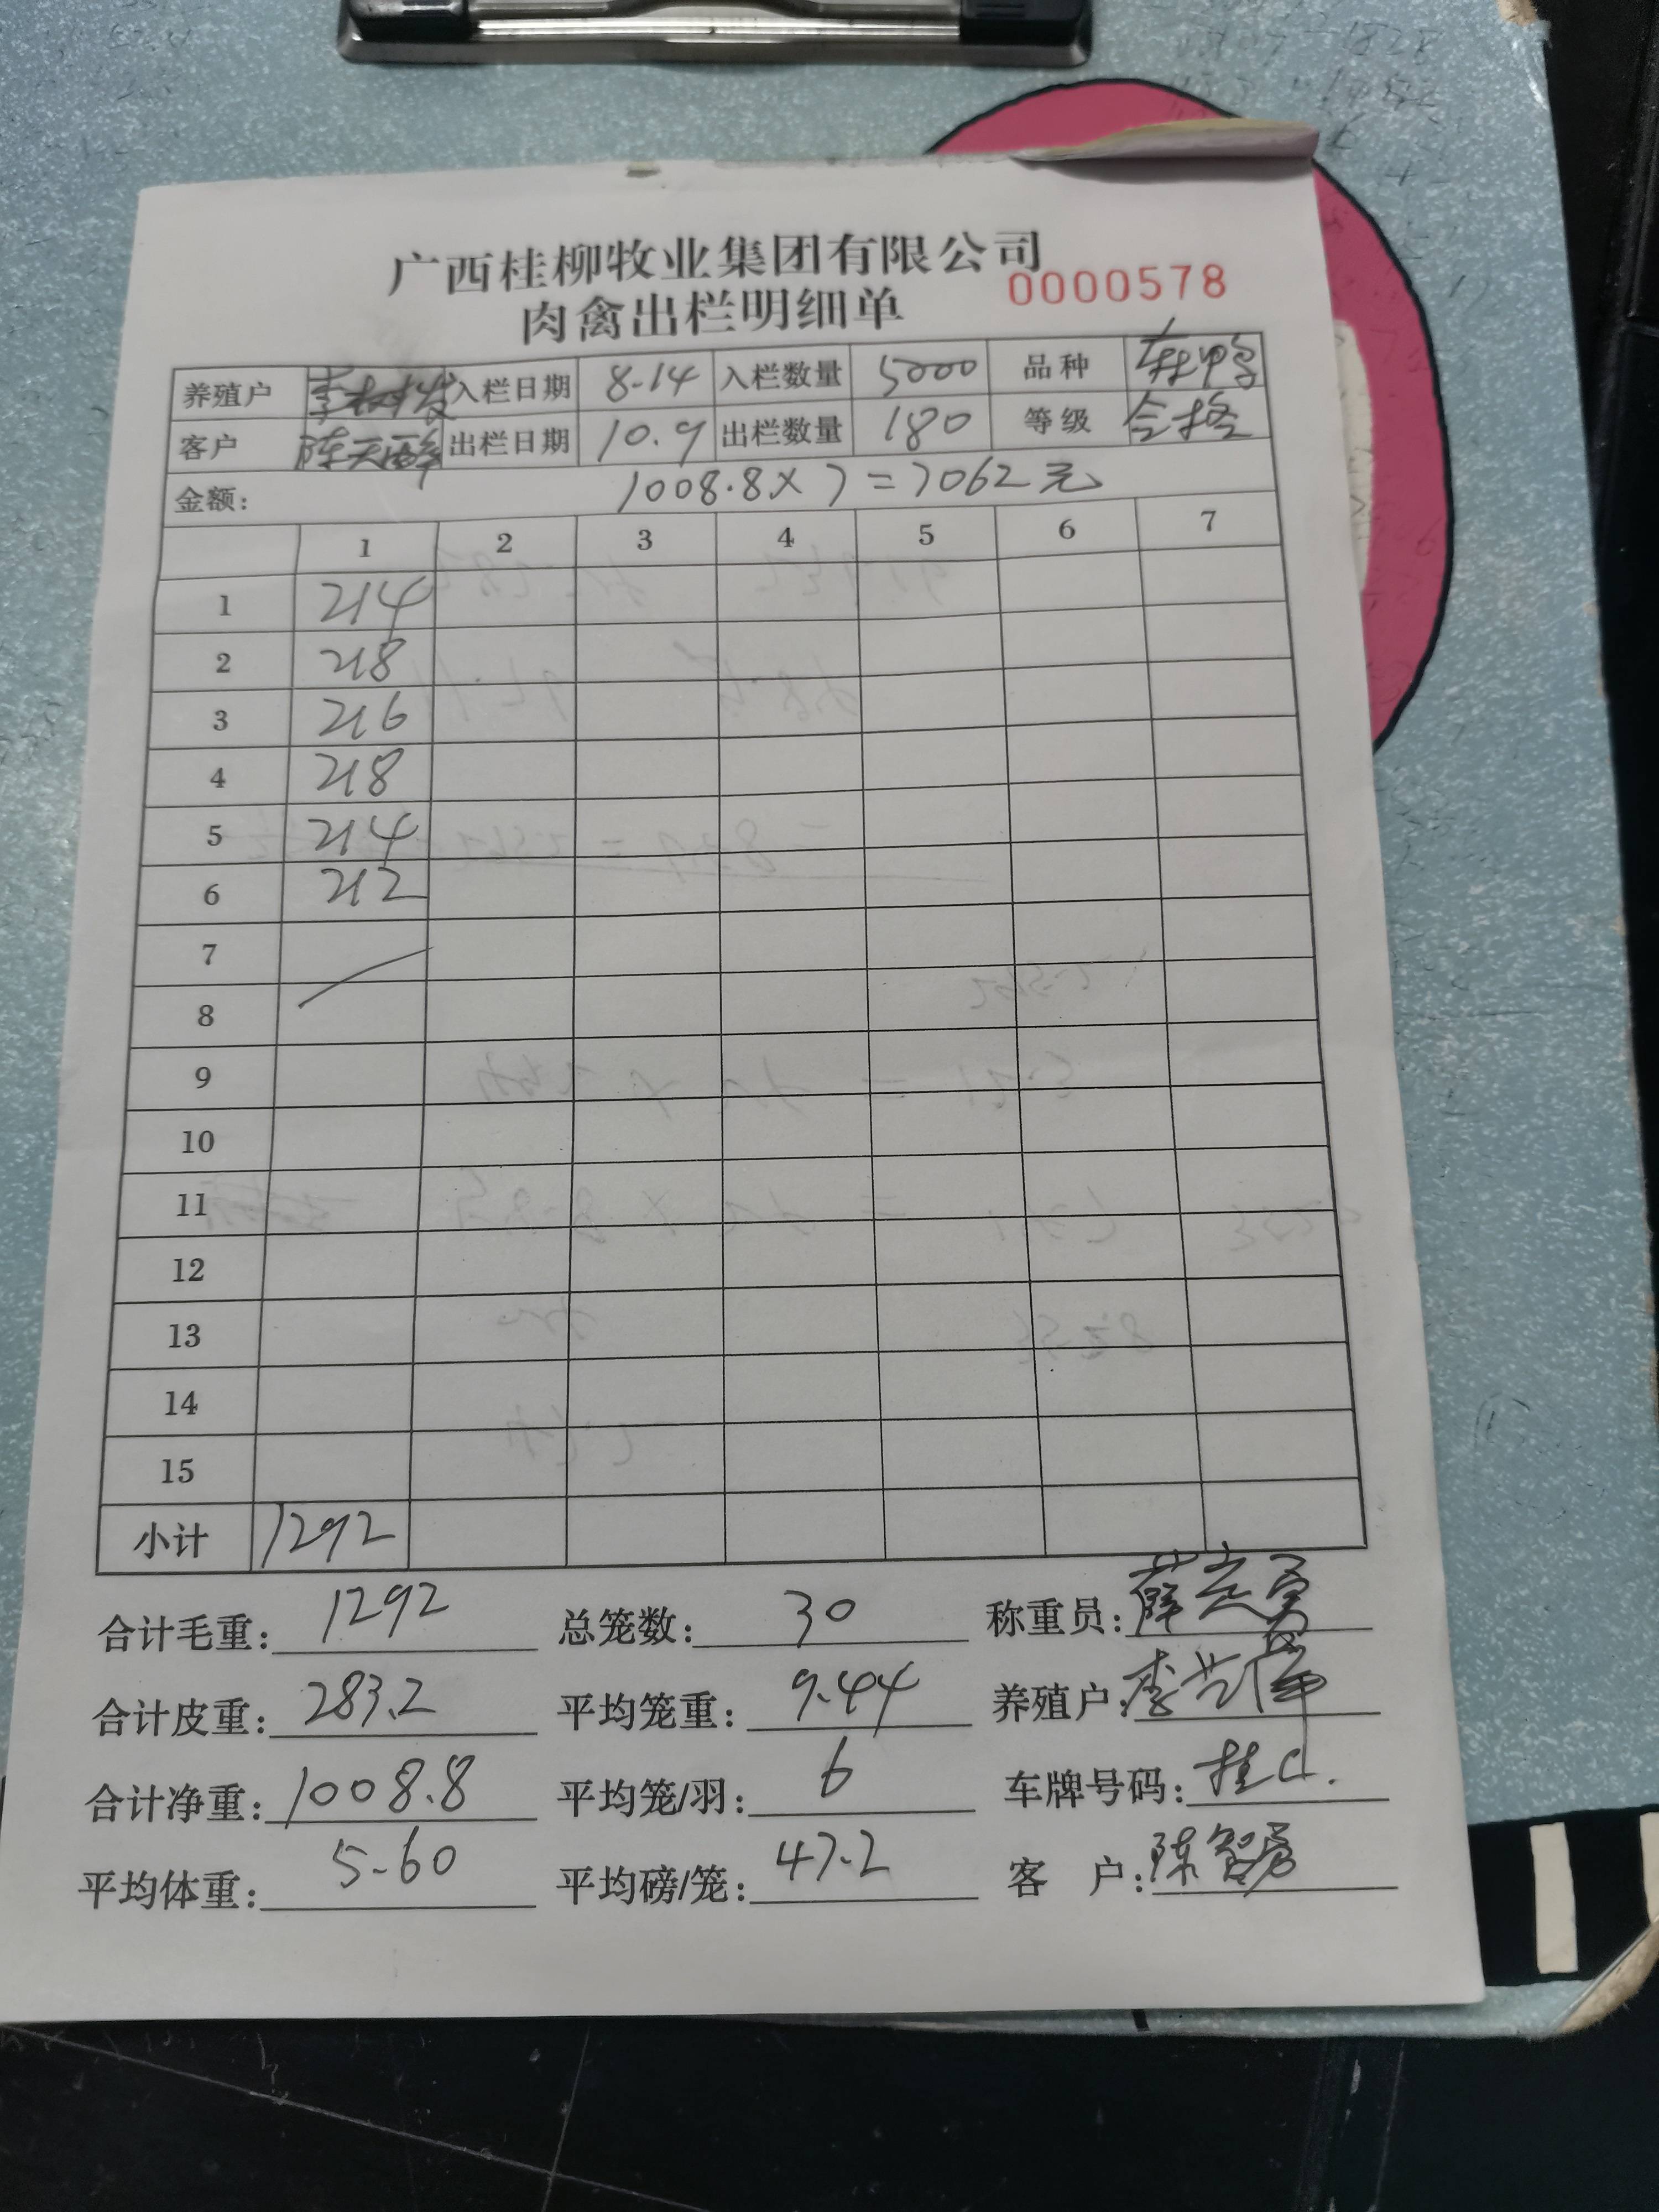 广西桂柳牧业集团有限公司
肉禽出栏明细单 0000578
养殖户 入栏日期 8.14 入栏数量 5000 品种
客户 陈天醉 出栏日期 10.9 出栏数量 180 等级 合格
金额: 1008.8×7=7062元
1 2 3 4 5 6 7
1 214
2 218
3 216
4 218
5 214
6 212
7
8
9
10
11
12
13
14
15
小计 1292
合计毛重: 1292 总笼数: 30 称重员:
合计皮重: 283.2 平均笼重: 9.44 养殖户:
合计净重: 1008.8 平均笼/羽: 6 车牌号码:
平均体重: 5.60 平均磅/笼: 47.2 客 户: